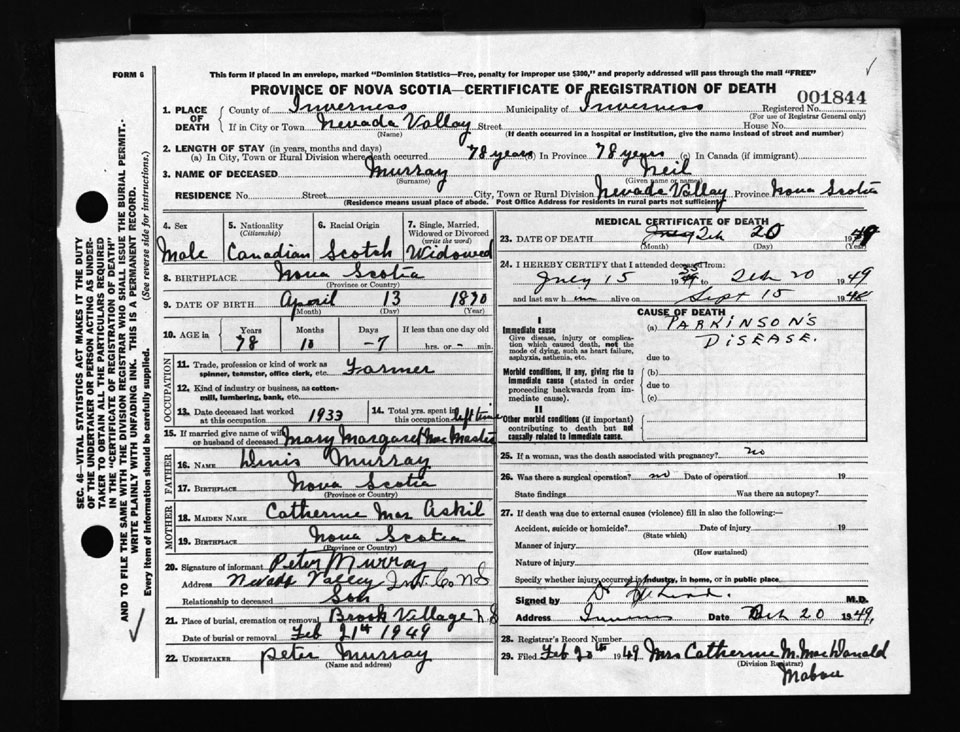 FORM 6
This form if placed in an envelope, marked "Dominion Statistics—Free, penalty for improper use $300," and properly addressed will pass through the mail "FREE"
PROVINCE OF NOVA SCOTIA—CERTIFICATE OF REGISTRATION OF DEATH
001844
1. PLACE OF DEATH
County of Inverness Municipality of Inverness Registered No.
(For use of Registrar General only)
If in City or Town Nevada Valley Street House No.
(Name) (If death occurred in a hospital or institution, give the name instead of street and number)
2. LENGTH OF STAY (in years, months and days)
(a) In City, Town or Rural Division where death occurred 78 years (b) In Province 78 years (c) In Canada (if immigrant)
3. NAME OF DECEASED Murray Neil
(Surname) (Given name or names)
RESIDENCE No. Street City, Town or Rural Division Nevada Valley Province Nova Scotia
(Residence means usual place of abode. Post Office Address for residents in rural parts not sufficient)
4. Sex 5. Nationality (Citizenship) 6. Racial Origin 7. Single, Married, Widowed or Divorced (write the word)
Male Canadian Scotch Widowed
8. BIRTHPLACE Nova Scotia
(Province or Country)
9. DATE OF BIRTH April 13 1870
(Month) (Day) (Year)
10. AGE in Years Months Days If less than one day old
78 10 -7 hrs. or - min.
OCCUPATION
11. Trade, profession or kind of work as spinner, teamster, office clerk, etc. Farmer
12. Kind of industry or business, as cotton-mill, lumbering, bank, etc.
13. Date deceased last worked at this occupation 1933
14. Total yrs. spent in this occupation
15. If married give name of wife or husband of deceased Mary Margaret MacMaster
FATHER
16. NAME Murray
17. BIRTHPLACE Nova Scotia
(Province or Country)
MOTHER
18. MAIDEN NAME Catherine Mac Askil
19. BIRTHPLACE Nova Scotia
(Province or Country)
20. Signature of informant Peter Murray
Address Valley Inv. Co N S
Relationship to deceased Son
21. Place of burial, cremation or removal Brook Village N.S
Date of burial or removal Feb 21st 1949
22. UNDERTAKER Peter Murray
(Name and address)
MEDICAL CERTIFICATE OF DEATH
23. DATE OF DEATH Feb 20 1949
(Month) (Day)
24. I HEREBY CERTIFY that I attended deceased from:
July 15 19 to Feb 20 1949
and last saw him alive on Sept 15 1948
CAUSE OF DEATH
I
Immediate cause
Give disease, injury or complication which caused death, not the mode of dying, such as heart failure, asphyxia, asthenia, etc.
(a) PARKINSON'S
DISEASE.
due to
Morbid conditions, if any, giving rise to immediate cause (stated in order proceeding backwards from immediate cause).
(b)
due to
(c)
II
Other morbid conditions (if important) contributing to death but not causally related to immediate cause.
25. If a woman, was the death associated with pregnancy? no
26. Was there a surgical operation? no Date of operation 19
State findings Was there an autopsy?
27. If death was due to external causes (violence) fill in also the following:—
Accident, suicide or homicide? Date of injury 19
(State which)
Manner of injury
(How sustained)
Nature of injury
Specify whether injury occurred in industry, in home, or in public place
Signed by Dr M.D.
Address Date Feb 20 1949.
28. Registrar's Record Number
29. Filed Feb 20th 1949 Mrs Catherine M. MacDonald
(Division Registrar)
Mabou
SEC. 46—VITAL STATISTICS ACT MAKES IT THE DUTY
OF THE UNDERTAKER OR PERSON ACTING AS UNDER-
TAKER TO OBTAIN ALL THE PARTICULARS REQUIRED
IN THE "CERTIFICATE OF REGISTRATION OF DEATH"
AND TO FILE THE SAME WITH THE DIVISION REGISTRAR WHO SHALL ISSUE THE BURIAL PERMIT.
WRITE PLAINLY WITH UNFADING INK. THIS IS A PERMANENT RECORD.
Every item of information should be carefully supplied. (See reverse side for instructions.)